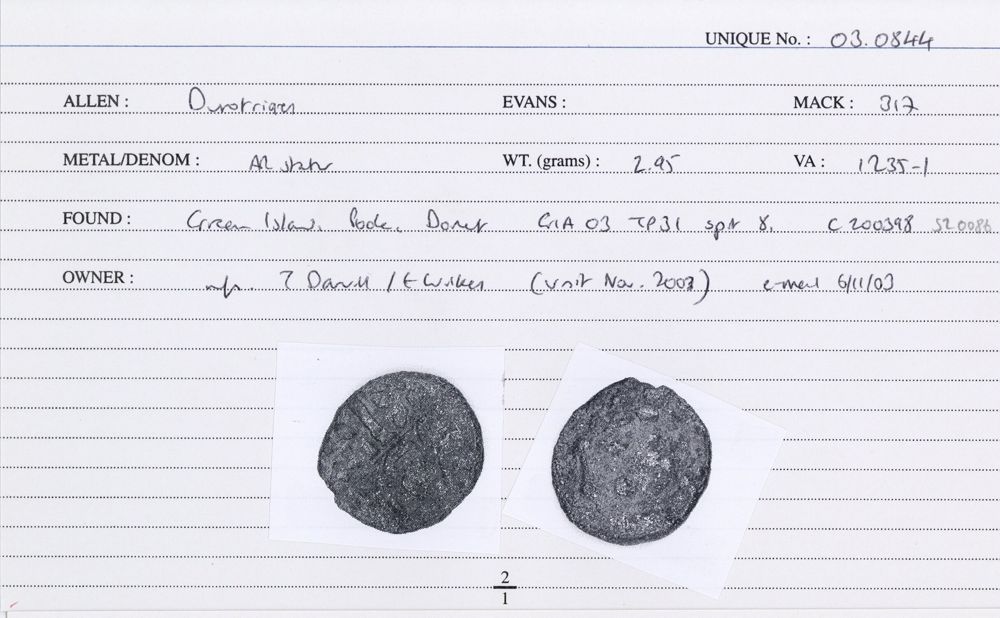 UNIQUE No. : 03.0844
ALLEN : Durotriges EVANS : MACK : 317
METAL/DENOM : AR stater WT. (grams) : 2.95 VA : 1235-1
FOUND : Green Island, Poole, Dorset GIA 03 TP31 spit 8. C 200398 SZ 0086
OWNER : T Darvill / E Wilkes (visit Nov. 2003) e-mail 6/11/03
2
1